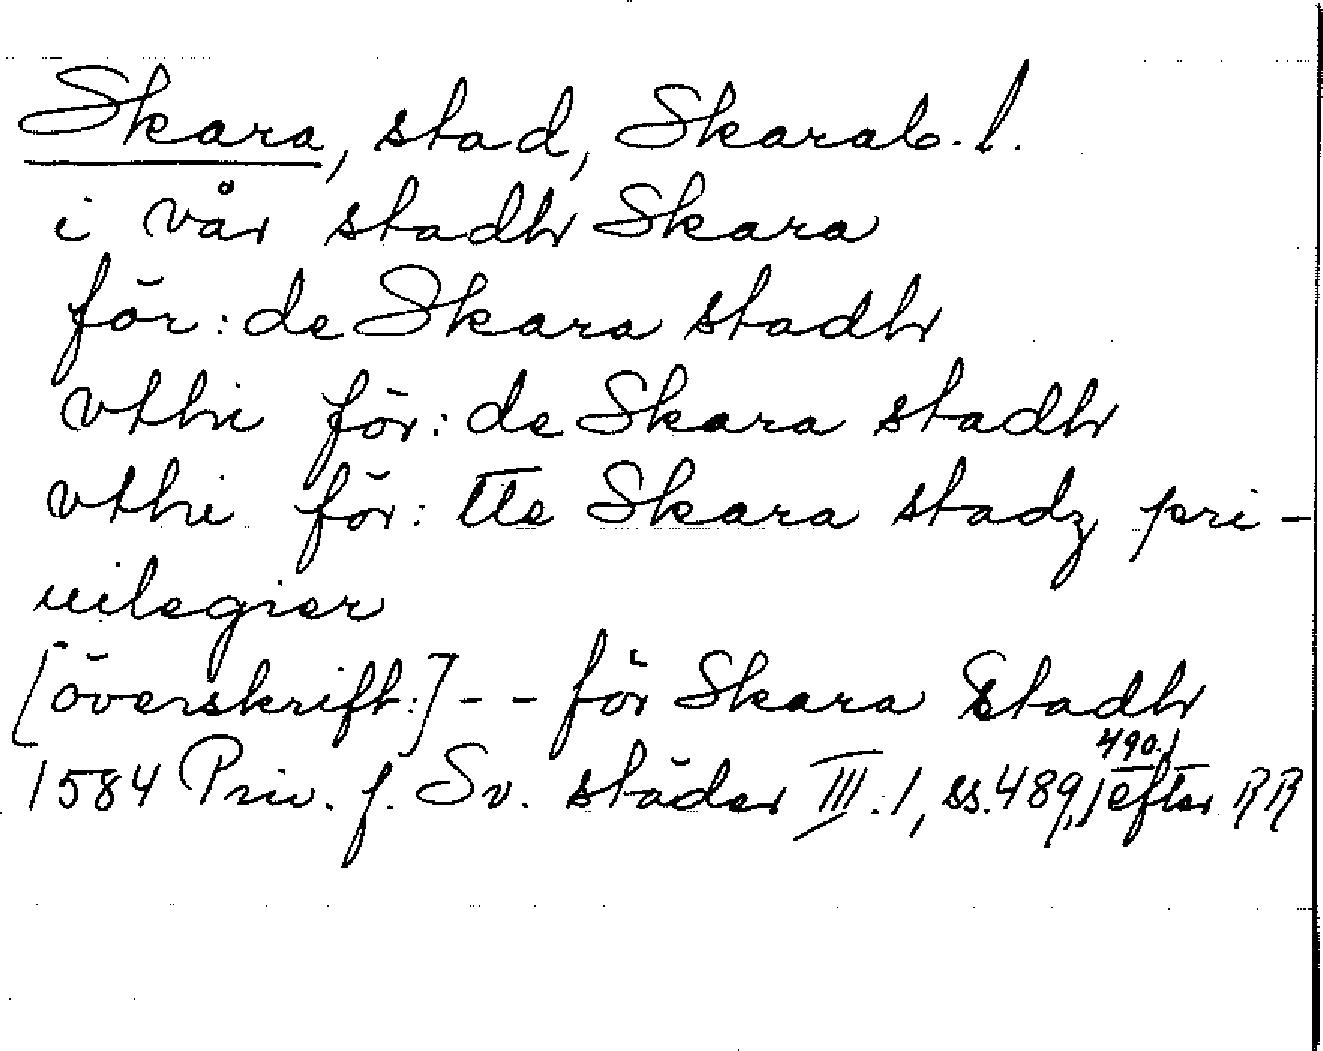 Skara, stad, Skarab. l.
i vår stadh Skara
för: de Skara stadh
vthi för: de Skara stadh
vthi för: tte Skara stadz pri-
uilegier
[överskrift:] - - för Skara Stadh
1584 Priv. f. Sv. städer III. 1, ss. 489, 490, efter RR